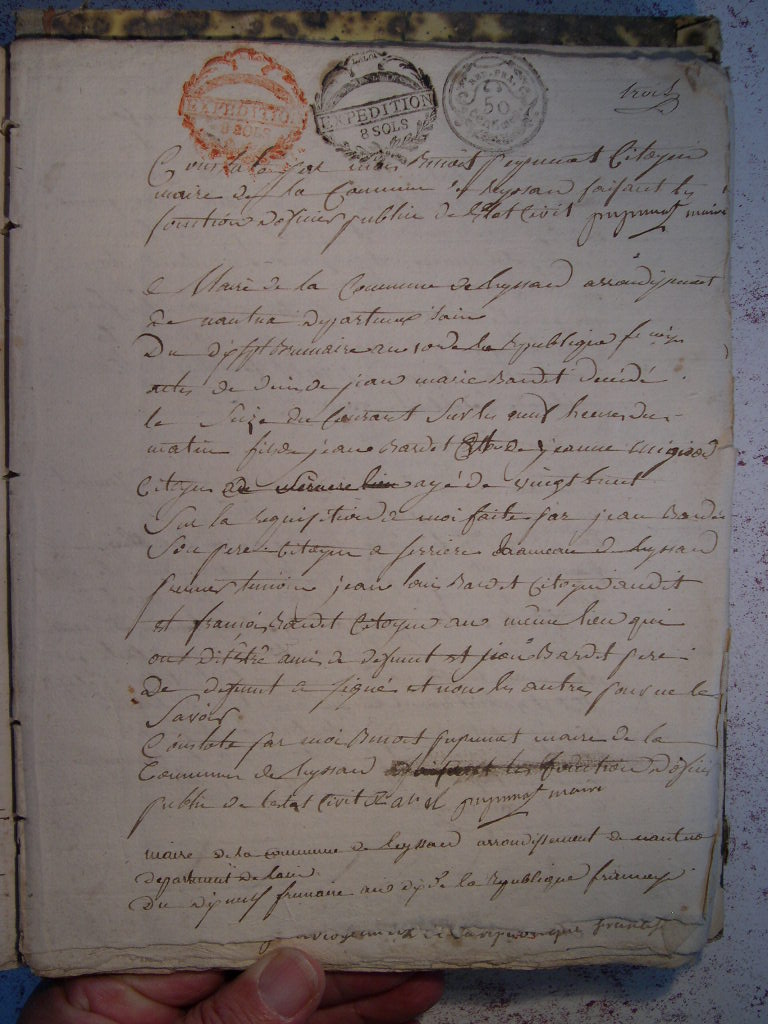 EXPEDITION
8 SOLS
EXPEDITION
8 SOLS
REP. FRA.
50
trois
Constaté par moi Benoit pupunat Citoyen
maire de la Commune de leyssard faisant les
fonction doficier publique de letat Civil pupunat maire
Maire de la Commune de leyssard arrondisement
de nantua departement lain
Du Brumaire an de la Republique
de jean marie Bardet décédé
le Seize du Courant Sur les neuf heures du
matin fils de jean Bardet de jeanne
Citoyen agé de vingt huit
Sur la requisition a moi faite par jean Bardet
Son pere Citoyen a serriere hameau de leyssard
premier temoin jean loui Bardet Citoyen audit
et françoi Bardet Citoyen au même lieu qui
ont dit être ami de defunt et jean Bardet pere
de defunt a signé et non les autres pour ne le
Savoir
Constaté par moi Benoit pupunat maire de la
Commune de leyssard les fonction doficier
public de letat Civil pupunat maire
maire de la commune de leyssard arrondissement de nantua
departement de lain
Du dix neuf frimaire an dix de la Republique